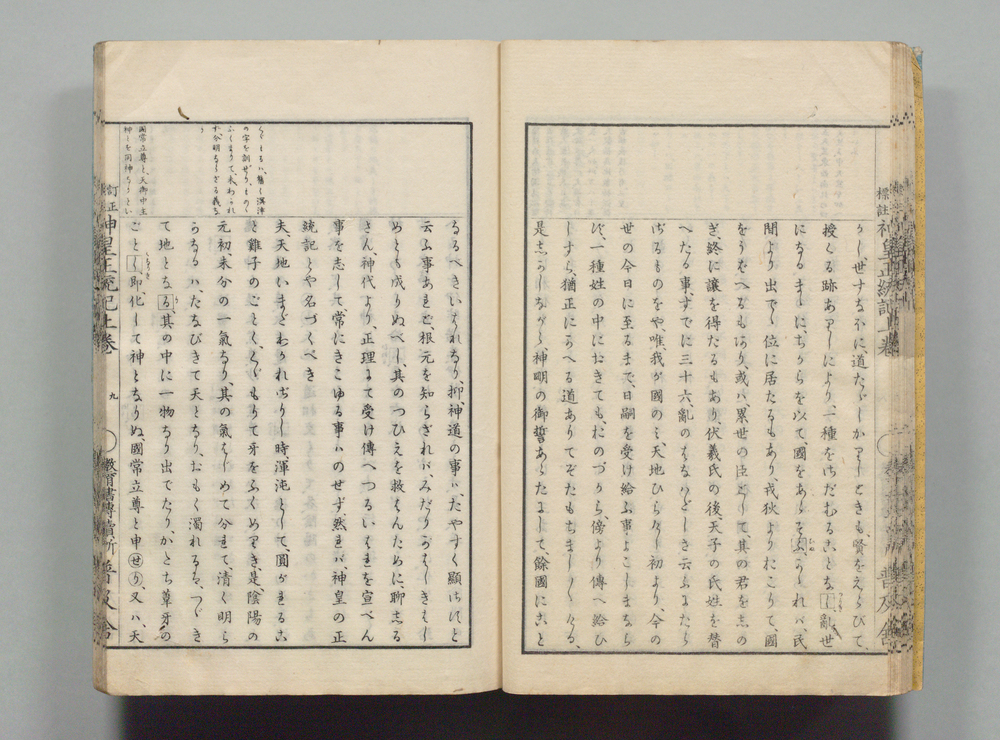 標註神皇正統記上卷
普及舍
うし、世すなほに道たゞしかりしときも、賢をえらびて、
授くる跡ありしにより一種をさだむることなし、亂世
になるまゝに、ちからを以て、國をあらそふ、かゝれバ民
間より出でゝ位に居たるもあり、戎狄よりおこりて、國
をうばへるもあり、或ハ累世の臣として、其の君をしの
ぎ、終に讓を得たるもあり、伏羲氏の後、天子の氏姓を替
へたる事すでに三十六、亂のはなはだしき云ふにたら
ざるものをや、唯我が國のミ、天地ひらけし初より、今の
世の今日に至るまで、日嗣を受け給ふ事よこしまなら
ず、一種姓の中におきても、おのづから、傍より傳へ給ひ
しすら、猶正にかへる道ありてぞたもちましましける、
是しかしながら、神明の御誓あらたにして、餘國にこと
なるべきいはれなり、抑、神道の事ハ、たやすく顯はさずと
云ふ事あれど、根元を知らざれバ、みだりがはしきはし
めとも成りぬべし、其のつひえを救はんために、聊しる
さん、神代より、正理にて受け傳へつるいはれを宣べん
事を志して、常にきこゆる事ハのせず、然れバ神皇の正
統記とや名づくべき
夫、天地いまだわかれざりし時、渾沌として、圓かれるこ
と雞子のごとく、くゞもりて牙をふくめりき、是、陰陽の
元初、未分の一氣なり、其の氣はじめて分れて、清く明ら
らなるハ、たなびきて天となり、おもく濁れるハ、つゞき
て地となる、其の中に一物なり出でたり、かたち葦牙の
ごとく、即化して神となりぬ、國常立尊と申せり、又ハ、天
國常立尊と天御中主
神とを同神なりとい
訂正神皇正統記上卷
九
教育書專賣所 普及舍